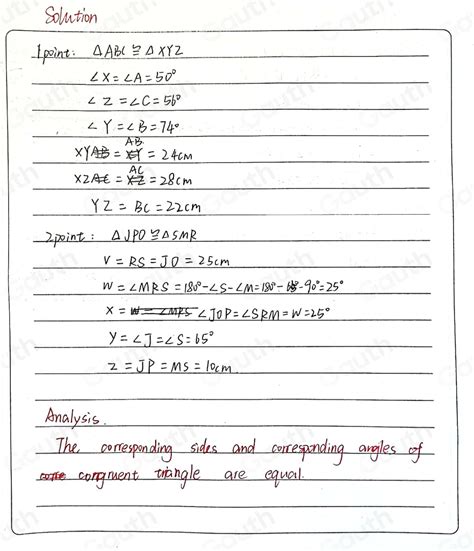 Solution
1 point: △ABC ≅ △XYZ
∠X=∠A=50°
∠Z=∠C=56°
∠Y=∠B=74°
XY = AB = 24cm
XZ = AC = 28cm
YZ = BC = 22cm
2 point: △JPO ≅ △SMR
V = RS = JO = 25cm
W = ∠MRS = 180°-∠S-∠M=180°-65°-90°=25°
X = ∠JOP=∠SRM=W=25°
Y=∠J=∠S=65°
Z=JP=MS=10cm.
Analysis.
The corresponding sides and corresponding angles of
congruent triangle are equal.
Gauth